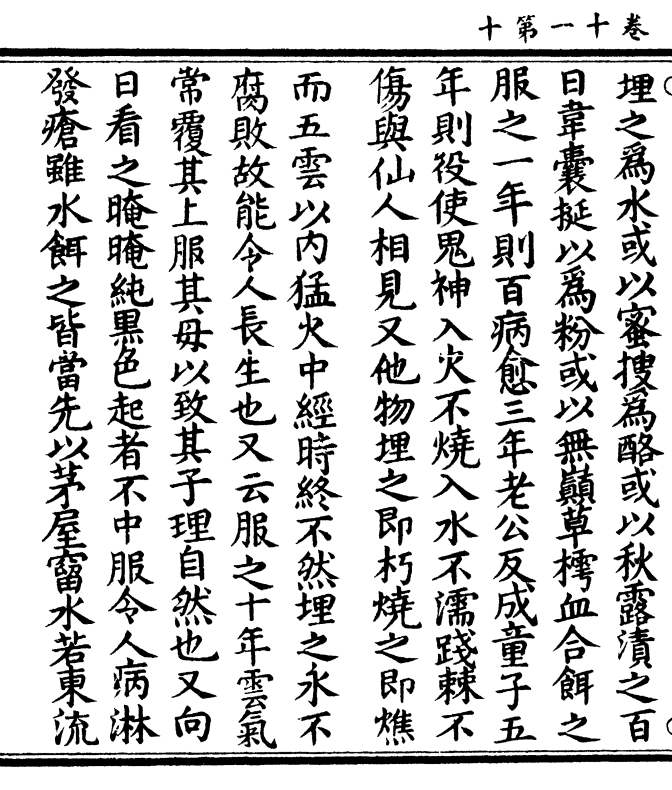 卷十一第十
埋之爲水或以蜜搜爲酪或以秋露漬之百
日韋囊挻以爲粉或以無巔草樗血合餌之
服之一年則百病愈三年老公反成童子五
年則役使鬼神入火不燒入水不濡踐棘不
傷與仙人相見又他物埋之即朽燒之即燋
而五雲以內猛火中經時終不然埋之永不
腐敗故能令人長生也又云服之十年雲氣
常覆其上服其母以致其子理自然也又向
日看之晻晻純黑色起者不中服令人病淋
發瘡雖水餌之皆當先以茅屋霤水若東流